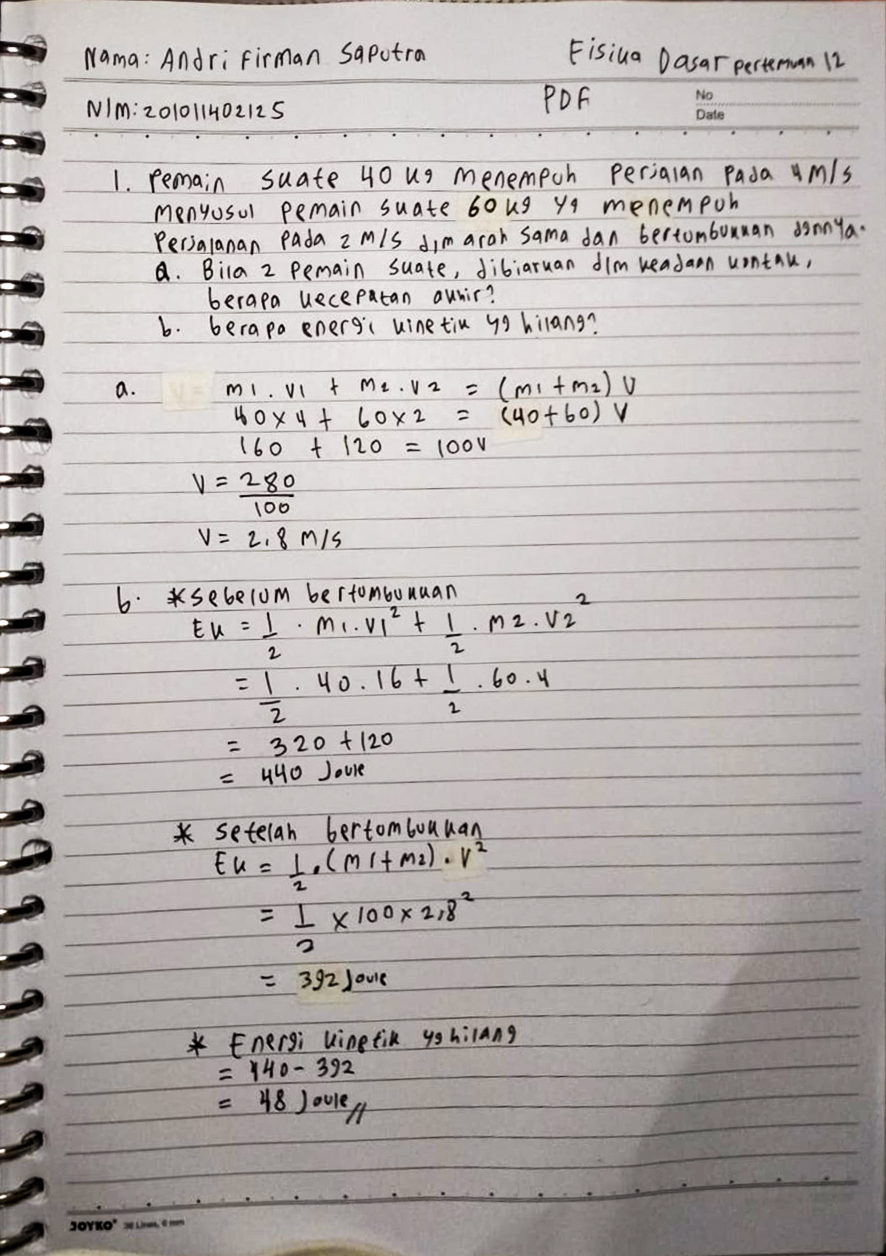 Nama: Andri Firman Saputra
Fisika Dasar pertemuan 12
NIM: 201011402125
PDF
No
Date
1. Pemain skate 40 kg menempuh perjalan pada 4 m/s
menyusul pemain skate 60 kg yg menempuh
perjalanan pada 2 m/s dlm arah sama dan bertumbukkan dgnnya.
a. Bila 2 pemain skate, dibiarkan dlm keadaan kontak,
berapa kecepatan akhir?
b. berapa energi kinetik yg hilang?
a. m1 . v1 + m2 . v2 = (m1 + m2) v
40 x 4 + 60 x 2 = (40 + 60) v
160 + 120 = 100v
V = 280/100
V = 2,8 m/s
b. *sebelum bertumbukkan
Ek = 1/2 . m1 . v1² + 1/2 . m2 . v2²
= 1/2 . 40 . 16 + 1/2 . 60 . 4
= 320 + 120
= 440 Joule
* setelah bertombukkan
Ek = 1/2 . (m1 + m2) . v²
= 1/2 x 100 x 2,8²
= 392 Joule
* Energi kinetik yg hilang
= 440 - 392
= 48 Joule //
JOYKO 36 Lines, 6 mm